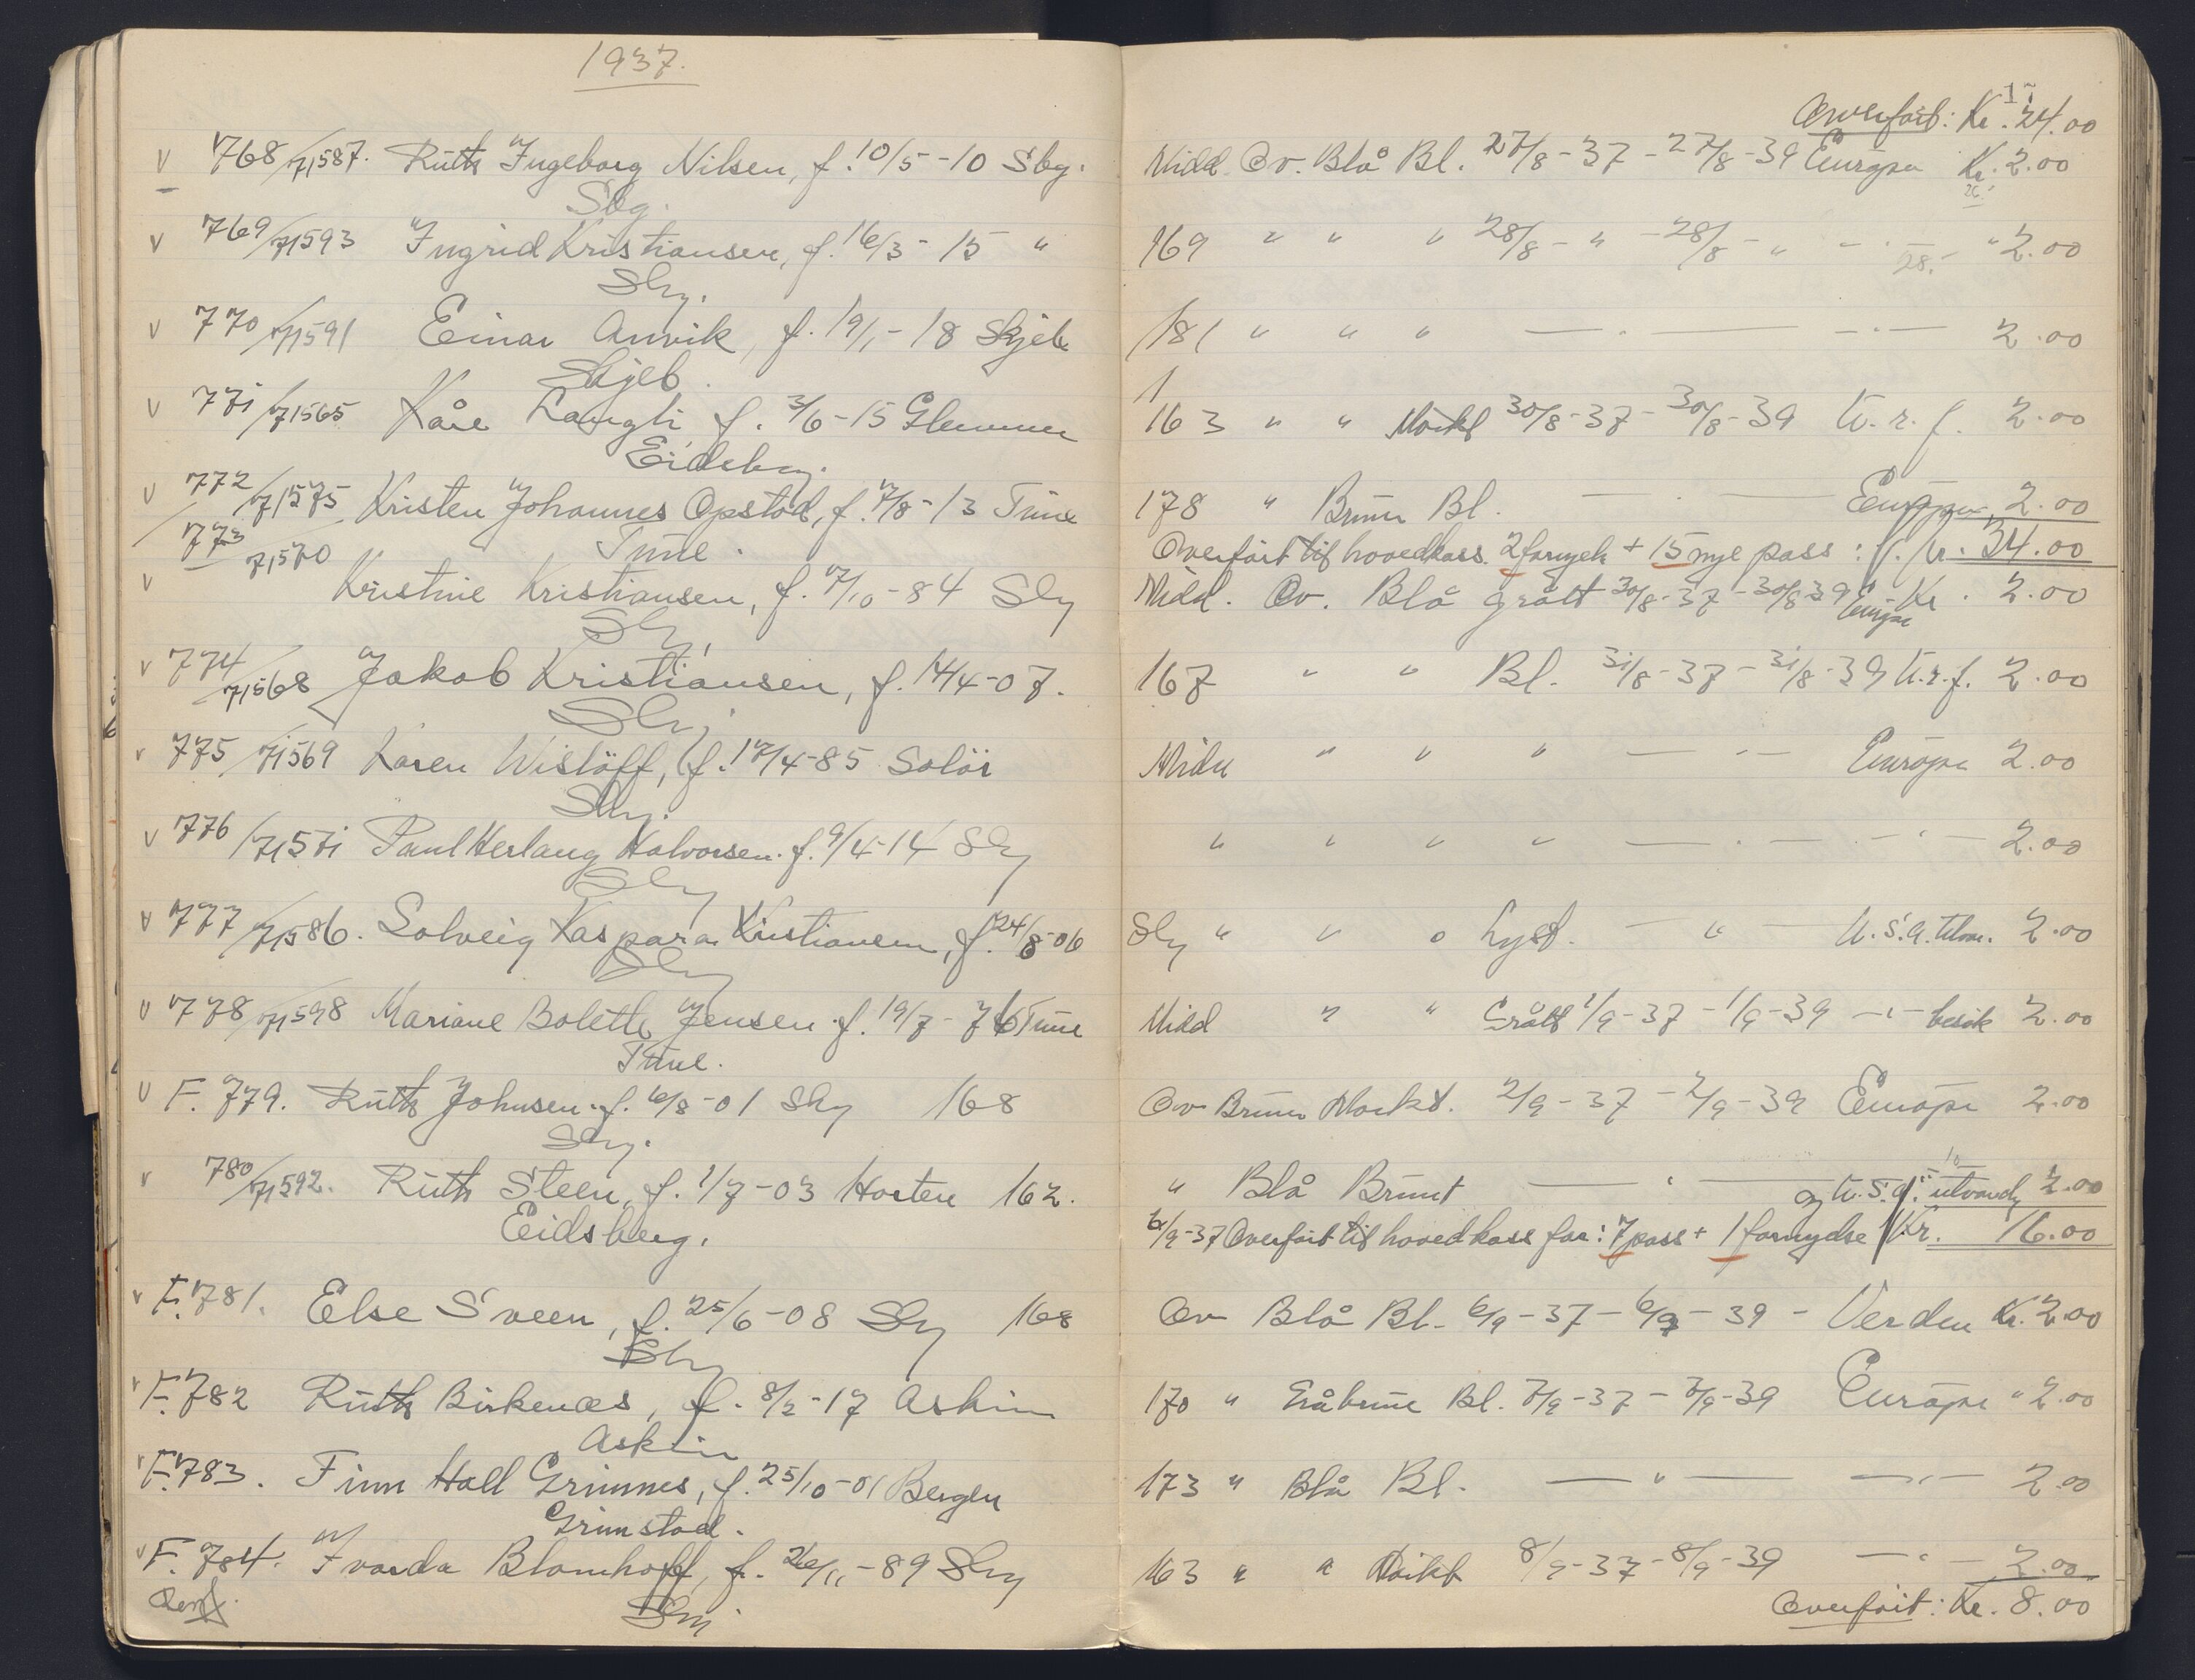 1937.
17
Overført: Kr. 24.00
V 768/71587. Ruth Ingeborg Nilsen, f. 10/5-10 Sbg. Midd. Ov. Blå Bl. 27/8-37-27/8-39 Europa Kr. 2.00
Sbg. 26.-
V 769/71593 Ingrid Kristiansen, f. 16/3-15 " 169 " " " 28/8-"-28/8-" -"- 28.- " 2.00
Sbg.
V 770/71591 Einar Anvik, f. 19/1-18 Skjeb 181 " " " —"— -"- 2.00
Skjeb.
V 771/71565 Kåre Langli f. 3/6-15 Glemmen 163 " " Mörkt 30/8-37-30/8-39 U.r.f. 2.00
Eidsberg.
V 772/71575 Kristen Johannes Opstad, f. 7/8-13 Tune 178 " Brun Bl. —"— Europa 2.00
Tune. Overført til hovedkass. 2 fornyels + 15 nye pass: Kr. 34.00
V 773/71570 Kristine Kristiansen, f. 7/10-84 Sbg Midd. Ov. Blå grått 30/8-37-30/8-39 Europa Kr. 2.00
Sbg.
V 774/71568 Jakob Kristiansen, f. 14/4-07. 167 " " Bl. 31/8-37-31/8-39 U.r.f. 2.00
Sbg.
V 775/71569 Karen Wislöff, f. 17/4-85 Solör Midd " " " —"— Europa 2.00
Sbg.
V 776/71571 Paul Herlaug Halvorsen. f. 9/4-14 Sbg " " " " —"— -"- 2.00
Sbg
V 777/71586. Solveig Kaspara Kristiansen, f. 24/8-06 Sbg " " " Lyst. —"— U.S.A. 2.00
Sbg
V 778/71598 Mariane Bolette Jensen f. 19/7-76 Tune Midd " " Grått 1/9-37-1/9-39 -"- besök 2.00
Tune.
V F. 779. Ruth Johnsen. f. 6/8-01 Sbg 168 Ov Brun Mörkt. 2/9-37-2/9-39 Europa 2.00
Sbg.
V 780/71592. Ruth Steen, f. 1/7-03 Horten 162. " Blå Brunt —"— og U.S.A. utvandr 2.00
Eidsberg. 6/9-37 Overført til hovedkass for: 7 pass + 1 fornyelse Kr. 16.00
V F. 781. Else Sveen, f. 25/6-08 Sbg 168 Ov Blå Bl. 6/9-37-6/9-39 - Verden Kr. 2.00
Sbg
V F. 782 Ruth Birkenæs, f. 8/2-17 Askim 170 " Gråbrune Bl. 7/9-37-7/9-39 Europa " 2.00
Askim
V F. 783. Finn Hall Grimnes, f. 25/10-01 Bergen 173 " Blå Bl. —"— -"- 2.00
Grimstad.
V F. 784. Ivarda Blomhoff, f. 26/11-89 Sbg 163 " " Mörkt 8/9-37-8/9-39 -"- 2.00
Sbg. Overført: Kr. 8.00